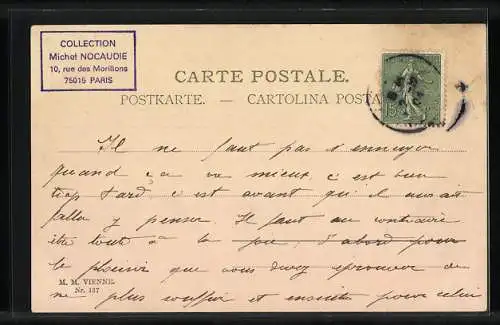 COLLECTION
Michel NOCAUDIE
10, rue des Morillons
75015 PARIS
CARTE POSTALE.
POSTKARTE. — CARTOLINA POSTA
Il ne faut pas s'ennuyer
quand ça va mieux, c'est bien
trop tard c'est avant qu'il aurait
fallu y penser. Il faut au contraire
être toute à la joie, d'abord pour
le plaisir que vous devez éprouver de
ne plus souffrir et ensuite pour celui
M. M. VIENNE.
Nr. 137